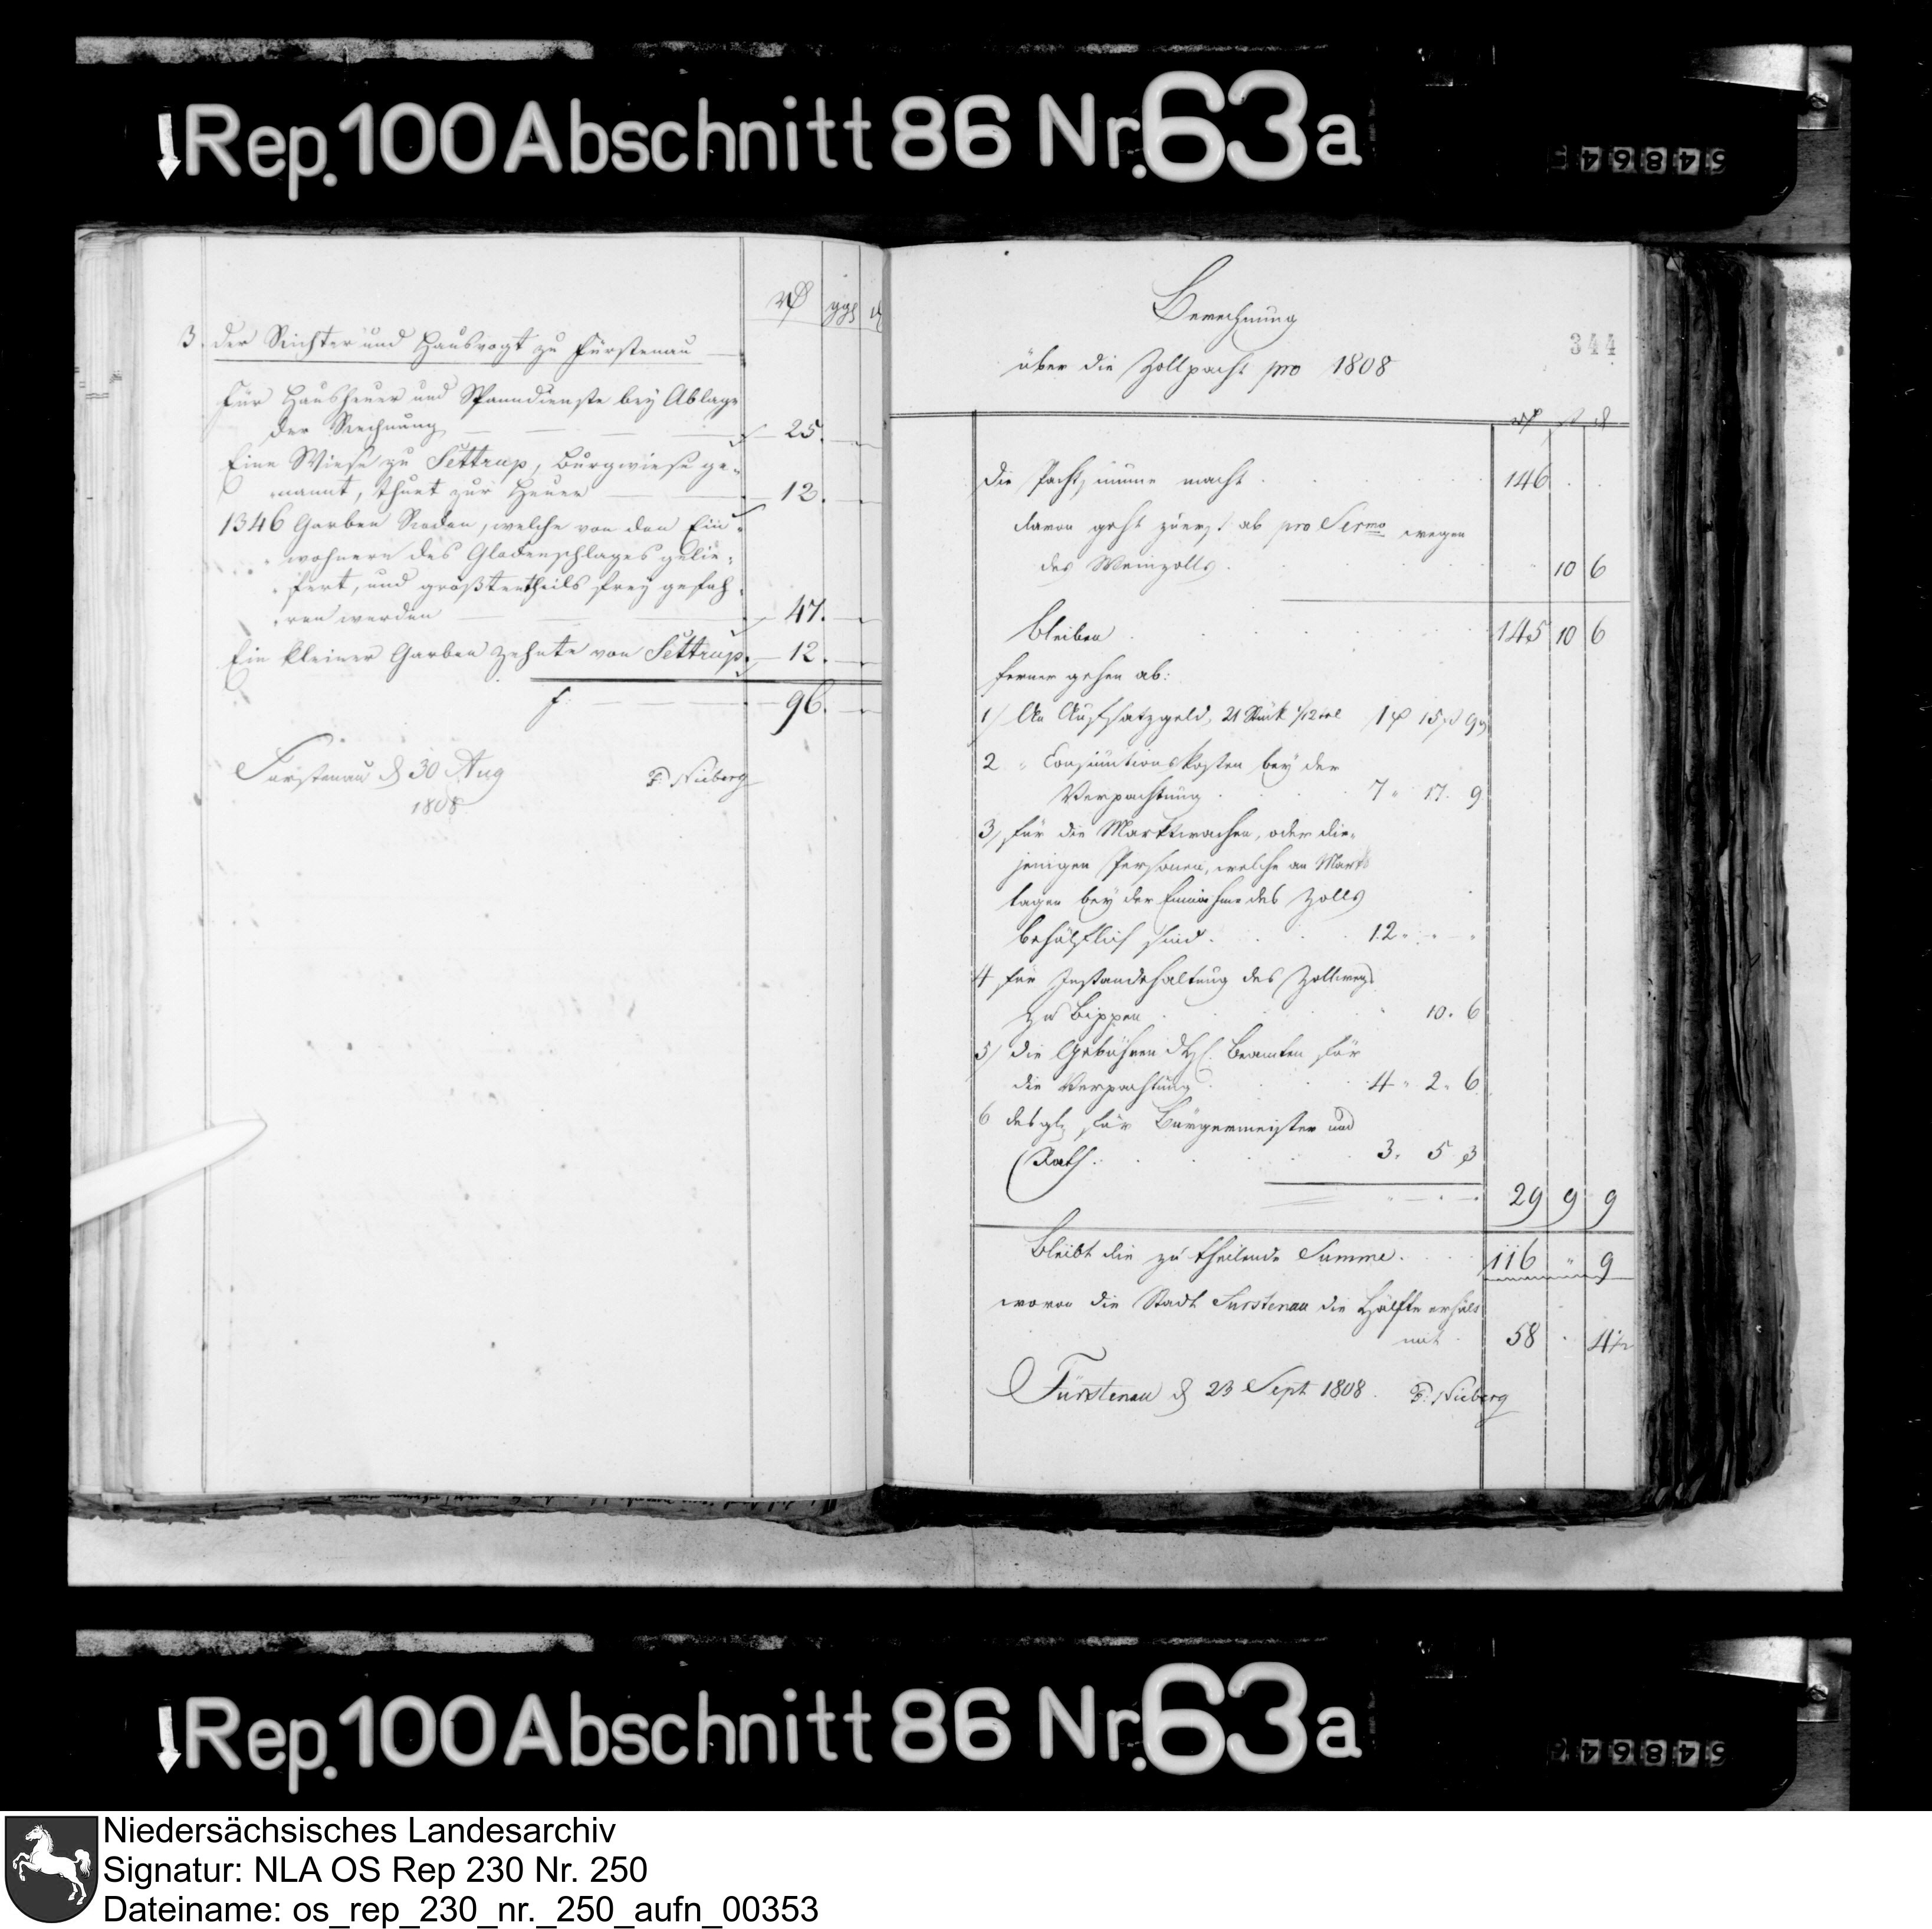 Rep. 100 Abschnitt 86 Nr. 63a
3. der Richter und Hausvogt zu Fürstenau
Für Hausheuer und Spanndienste bey Ablage
der Rechnung 25.
Eine Wiese zu Settrup, Burgwiese ge-
nannt, thuet zur Heuer 12.
1346 Garben Roden, welche von den Ein-
wohnern des Glockenschlages gelie-
fert, und größtentheils frey gefah-
ren werden 47.
Ein kleiner Garben Zehnte von Settrup. 12.
96.
Fürstenau d 30 Aug
1808
F. Nieberg
344
Berechnung
über die Zollpacht pro 1808
die Pachtsumme macht 146
davon geht zuerst ab pro Sermo wegen
des Weinzolls 10 6
bleiben 145 10 6
ferner gehen ab:
1/ An Aufsatzgeld, 21 Stück 1/12tel 1 15 9
2 " Consumtionskosten bey der
Verpachtung 7 " 17. 9
3, für die Marktwachen, oder die-
jenigen Personen, welche an Markt
tagen bey der Einnahme des Zolls
behülflich sind. 12 "
4 für Instandhaltung des Zollwegs
zu Bippen 10. 6
5/ die Gebühren Beamten für
die Verpachtung 4 " 2 " 6
6 desgl für Bürgermeister und
Rath. 3. 5 3
29 9 9
Bleibt die zu theilende Summe. 116 " 9
wovon die Stadt Fürstenau die Hälfte erhält
mit 58 . 4 1/2
Fürstenau d 23 Sept 1808. F. Nieberg
Rep. 100 Abschnitt 86 Nr. 63a
Niedersächsisches Landesarchiv
Signatur: NLA OS Rep 230 Nr. 250
Dateiname: os_rep_230_nr._250_aufn_00353